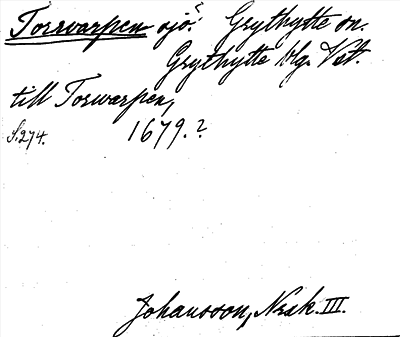 Torrvarpen sjö? Grythytte sn.
Grythytte blg. Vstm.
till Torwarpen,
S.274. 1679.?
Johansson, Norsk. III.